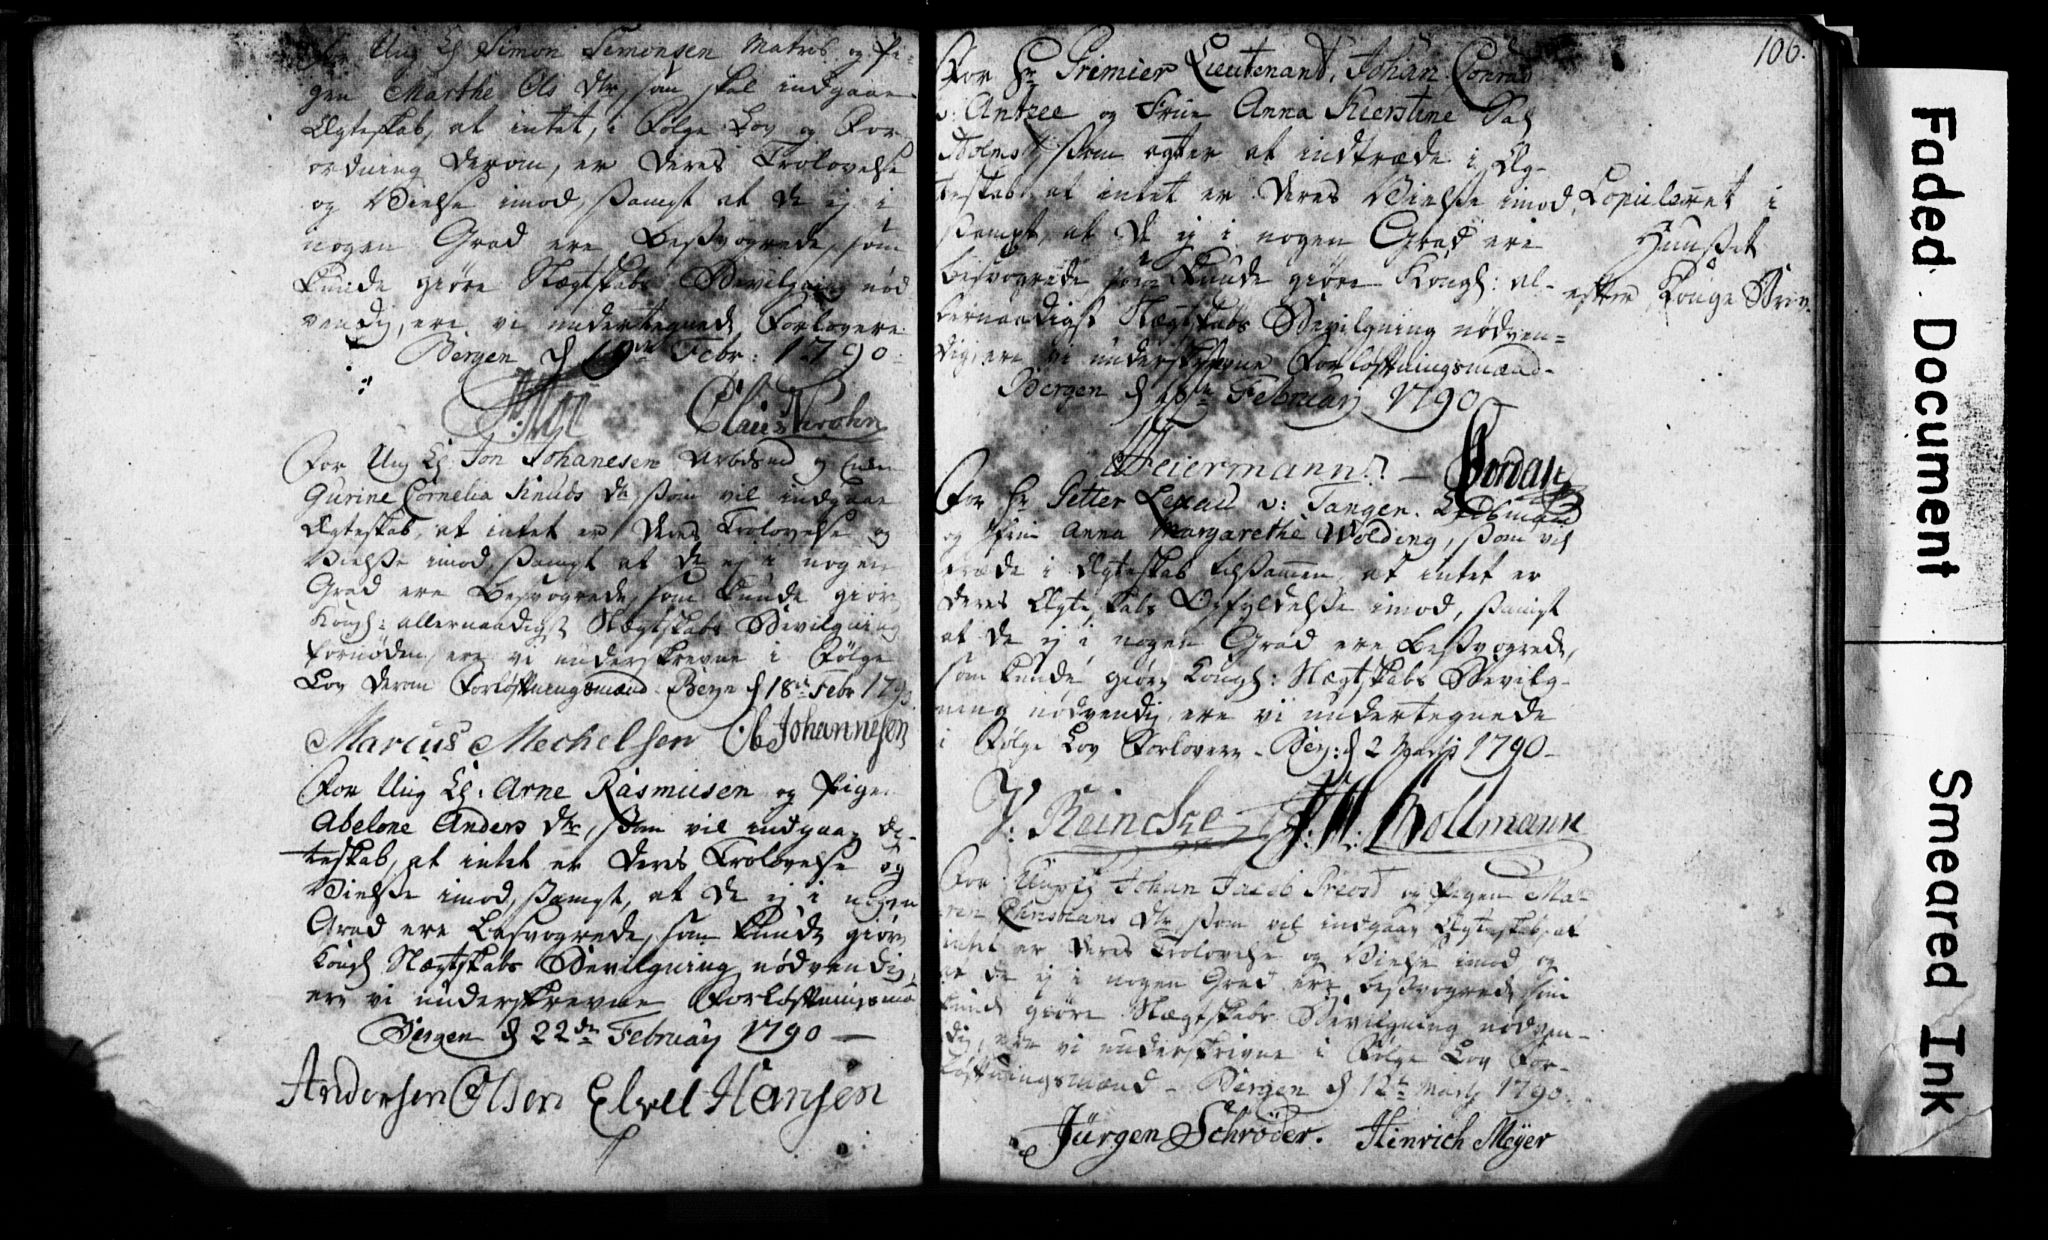 Ung Kl Simon Simonsen Matros og Pi-
gen Marthe Ols dtr, som skal indgaae
Ægteskab, at intet, i Følge Lov og For-
ordning derom, er deres Trolovelse
og Vielse imod, sampt at de ej i
nogen Grad ere Besvogrede, som
kunde giøre Slægtskabs Bevilgning nød
vendig, ere vi undertegnede Forlovere
Bergen d Febr: 1790
Claus Krohn
For Ung Kl Jon Johanesen Arbdsmd og Enke
Gurine Cornelia Knuds dtr, som vil indgaae
Ægteskab, at intet er deres Trolovelse og
Vielsse imod, sampt at de ej i nogen
Grad ere Besvogrede, som kunde giøre
Kongl: allernaadigst Slægtskabs Bevilgning
fornøden, ere vi underskrevne i Følge
Lov derom Forløftningsmænd Bergn d 18de Febr 1790
Marcus Mechelsen Ole Johannesen
For Ung Kl: Arne Rasmusen og Pigen
Abelone Anders dtr, som vil indgaae Æg-
teskab, at intet er deres Trolovelse og
Vielsse imod, sampt, at de ej i nogen
Grad ere Besvogrede, som kunde giøre
Kongl Slægtskabs Bevilgning nødvendig,
ere vi underskrevne Forløftningsmæ
Bergen d 22de February 1790
Andersen Olsen Elvel Hansen
106.
For Hr Primier Lieutenant, Johan Conrad
v: Antzee og Frue Anna Kierstine Sal
Holms som agter at indtræde i Æg-
teskab, at intet er deres Vielsse imod,
sampt, at de ej i nogen Grad ere
besvogrede som kunde giøre Kongl: al-
lernaadigst Slægtskabs Bevilgning nødven=
dig, ere vi underskrevne Forløftningsmænd
Bergen d 18de February 1790
Copuleret i
Huuset
efter Konge Brev.
Meiermann Jordan
For Hr Petter Lexau v: Tangen. Kiøbmand
og Jfru Anna Margarethe Wolding, som vil
træde i Ægteskab tilsammen, at intet er
deres Ægteskabs Opfyldelsse imod, sampt
at de ej i nogen Grad ere Besvogrede,
som kunde giøre Kongl: Slægtskabs Bevilg-
ning nødvendig ere vi undertegnede
i Følge Lov Forlovere Berg: d 2 Martj 1790
J: Reincke J: M. Bollmann
For Ung Kl Johan Jacob Preost og Pigen Ma-
ren Christians dtr som vil indgaae Ægteskab, at
intet er deres Trolovelse og Vielse imod og
at de ej i nogen Grad ere besvogrede som
kunde giøre Slægtskabs Bevilgning nødven-
dig, ere vi underskrivne i Følge Lov For-
løftningsmænd - Bergen d 12te Martj 1790.
Jürgen Schröder. Hinrich Meÿer
Faded Document
Smeared Ink